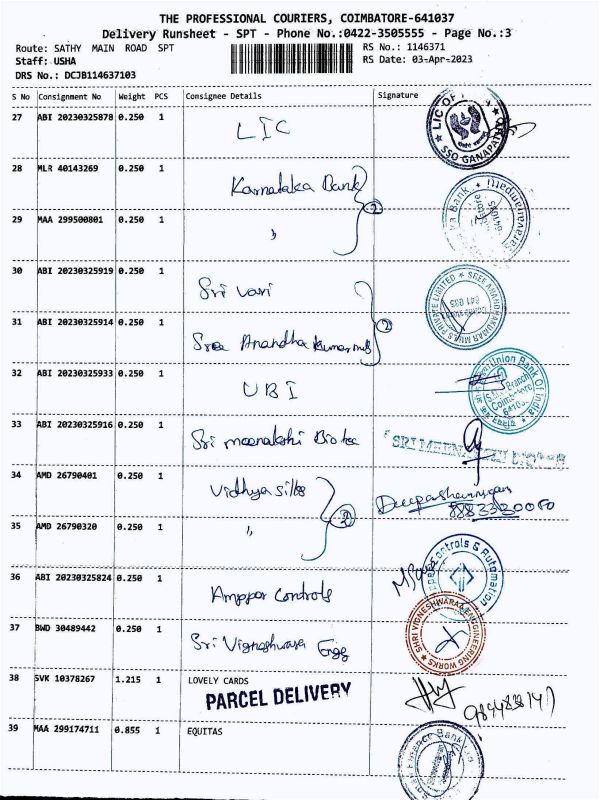 THE PROFESSIONAL COURIERS, COIMBATORE-641037
Delivery Runsheet - SPT - Phone No.:0422-3505555 - Page No.:3
Route: SATHY MAIN ROAD SPT RS No.: 1146371
Staff: USHA RS Date: 03-Apr-2023
DRS No.: DCJB114637103
S No Consignment No Weight PCS Consignee Details Signature
27 ABI 20230325878 0.250 1 LIC LIC OF SSO GANAPATHY
28 MLR 40143269 0.250 1 Karnataka Bank
29 MAA 299500801 0.250 1 " 2
30 ABI 20230325919 0.250 1 Sri Vari
31 ABI 20230325914 0.250 1 Sree Anandha Kumar mills 2 PRIVATE LIMITED
32 ABI 20230325933 0.250 1 UBI Union Bank Of India Branch Coimbatore
33 ABI 20230325916 0.250 1 Sri meenakshi Biotec SRI MEENAKSHI
34 AMD 26790401 0.250 1 Vidhya silks
35 AMD 26790320 0.250 1 " 2
36 ABI 20230325824 0.250 1 Amppar Controls Controls & Automation
37 BWD 30489442 0.250 1 Sri Vigneshwara Engg SHRI VIGNESHWARAA ENGINEERING WORKS
38 SVK 10378267 1.215 1 LOVELY CARDS
PARCEL DELIVERY
39 MAA 299174711 0.855 1 EQUITAS Finance Bank